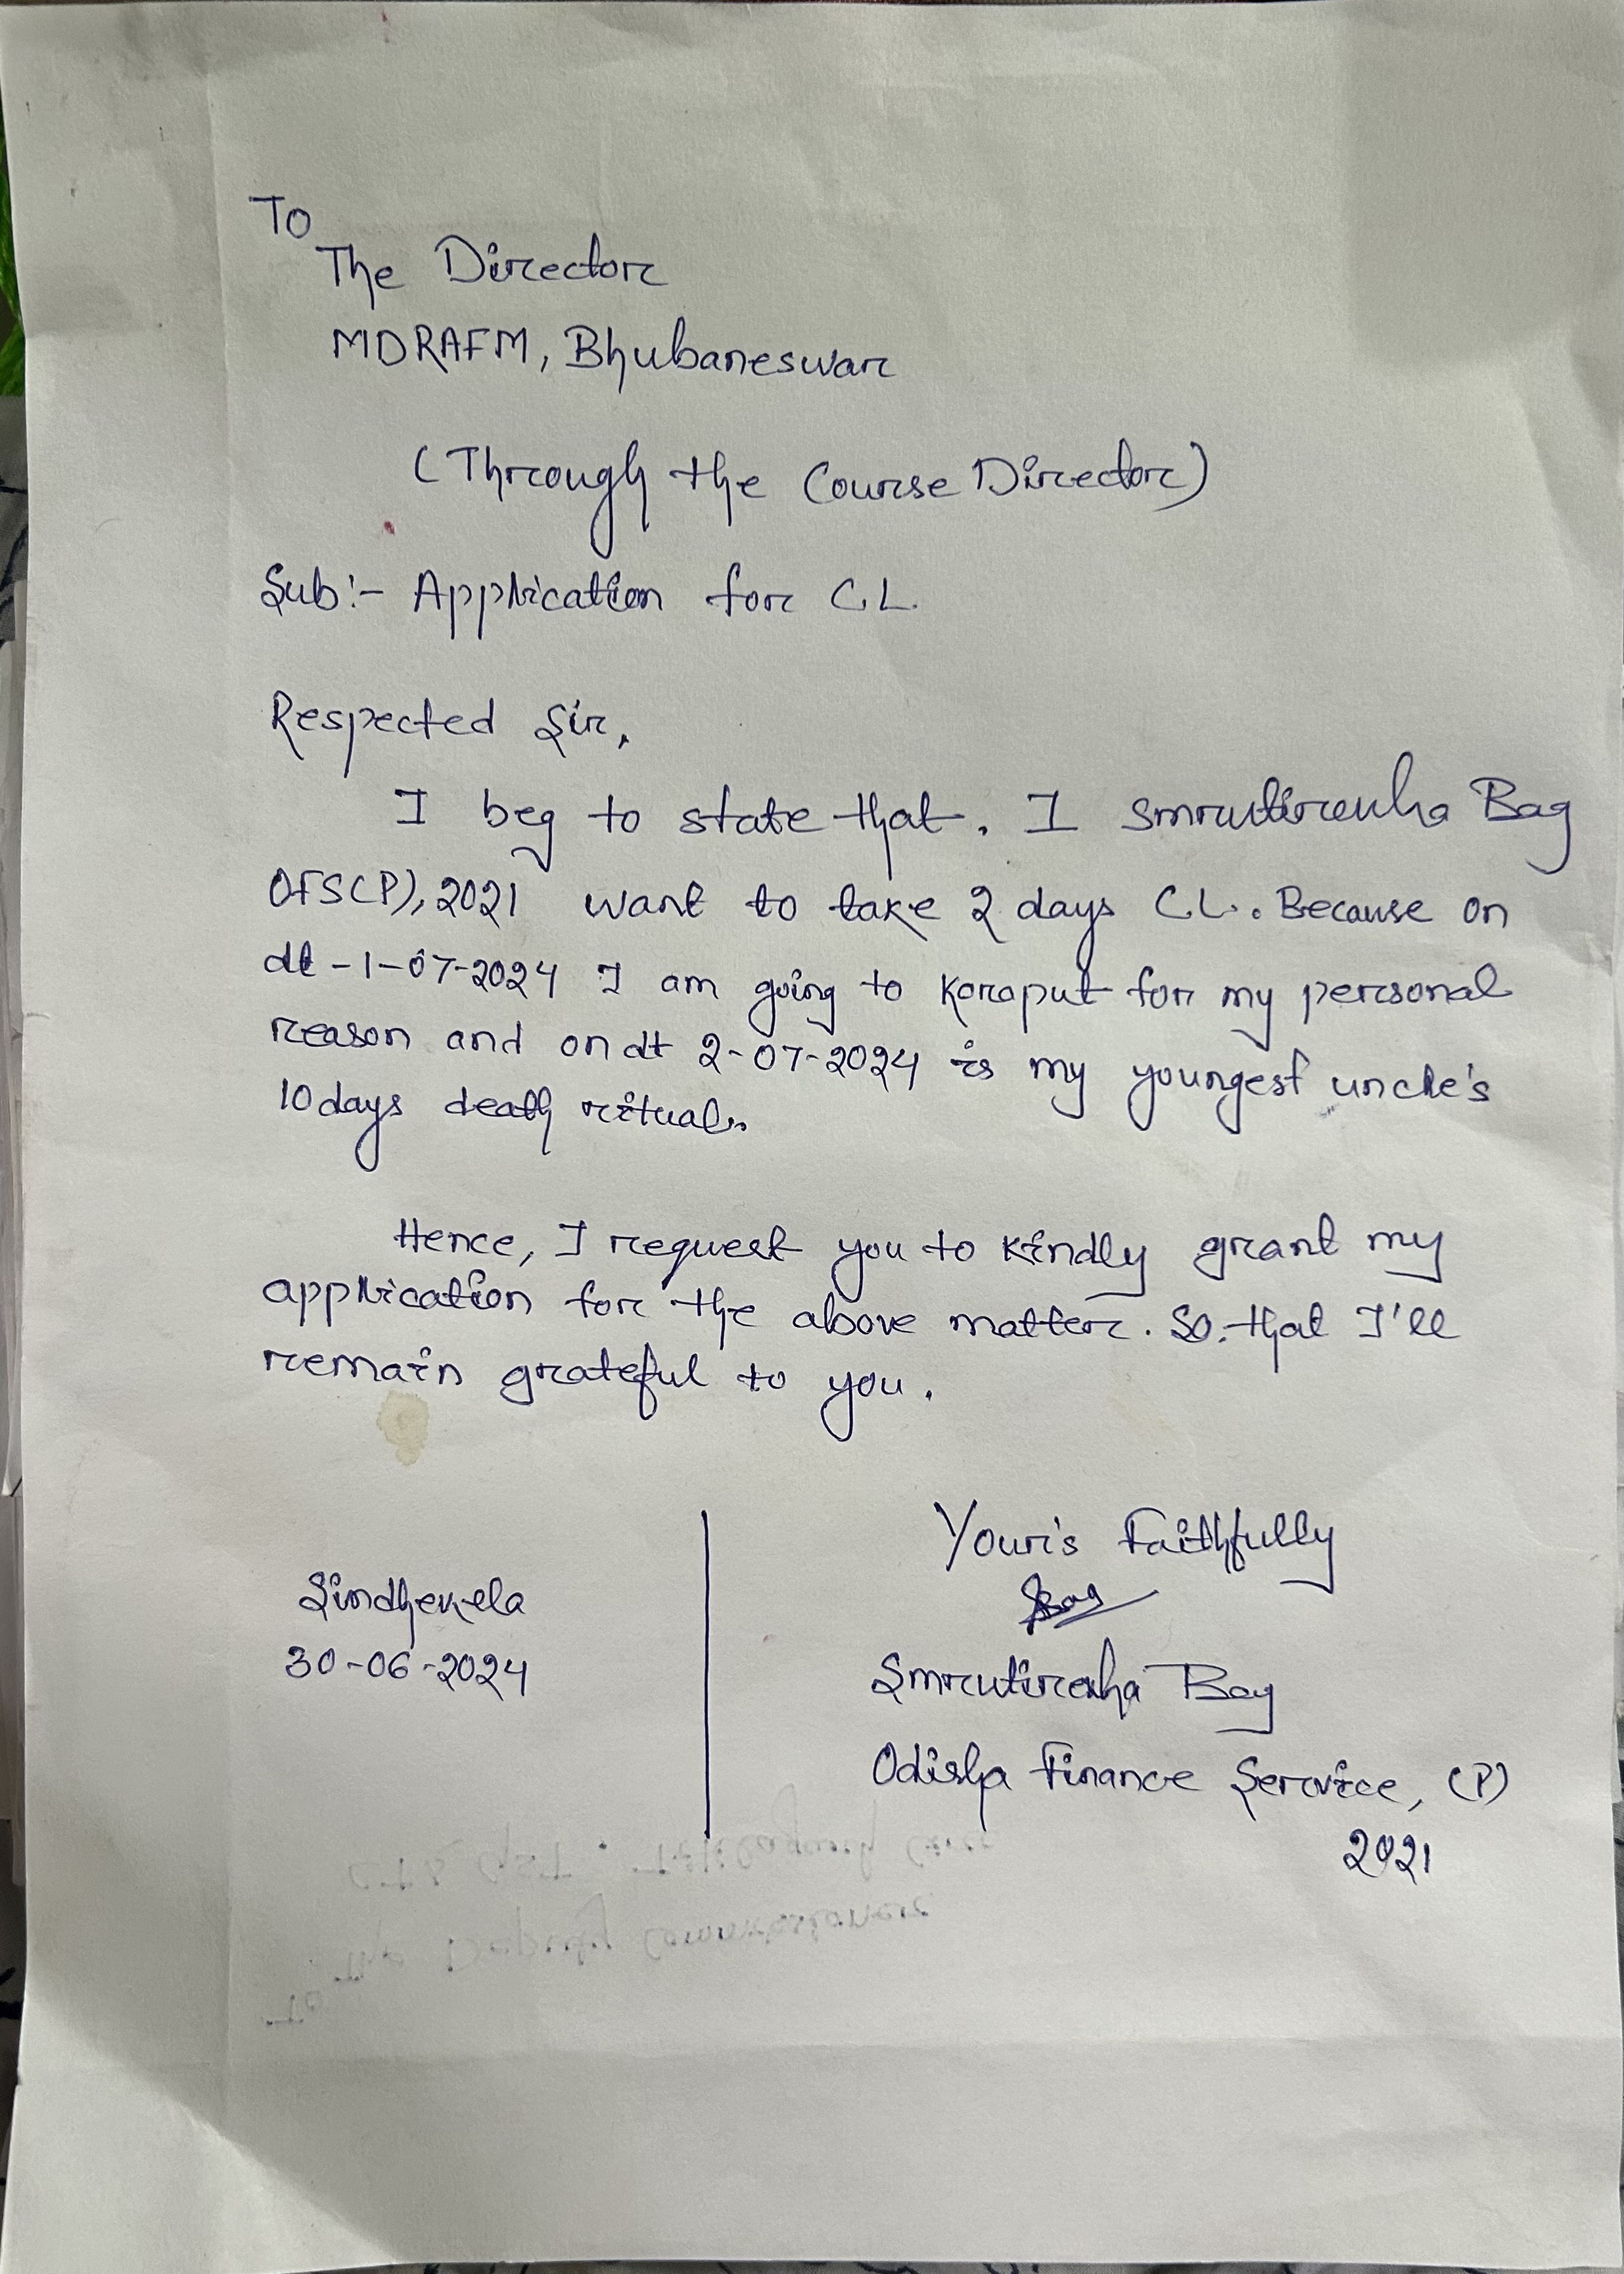 To
The Director
MDRAFM, Bhubaneswar
(Through the Course Director)
Sub:- Application for C.L.
Respected Sir,
I beg to state that. I Smrutirekha Bag
OFS(P), 2021 want to take 2 days C.L. Because on
dt-1-07-2024 I am going to Koraput for my personal
reason and on dt 2-07-2024 is my youngest uncle's
10 days death ritual.
Hence, I request you to kindly grant my
application for the above matter. So. that I'll
remain grateful to you.
Your's Faithfully
SBag
Smrutirekha Bag
Odisha Finance Service, (P)
2021
Sindhekela
30-06-2024